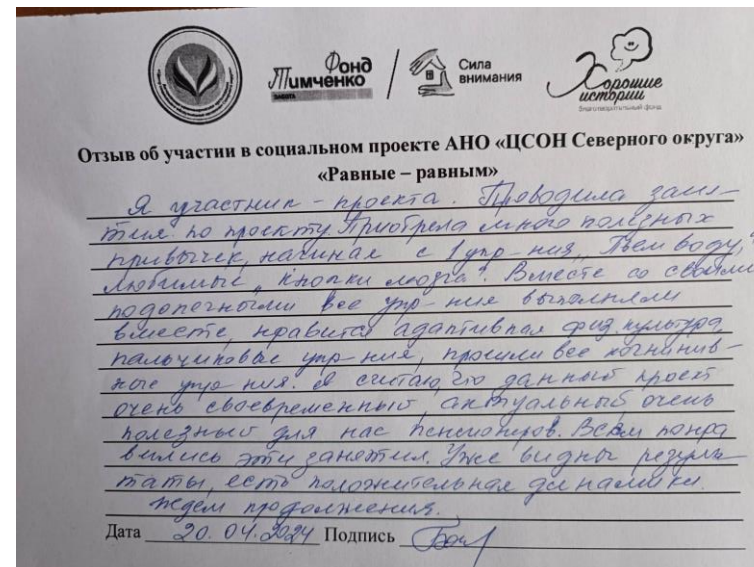 Фонд Тимченко
ЗАБОТА
Сила внимания
Хорошие истории
благотворительный фонд
Отзыв об участии в социальном проекте АНО «ЦСОН Северного округа»
«Равные – равным»
Я участник - проекта. Проводила заня-
тия по проекту. Приобрела много полезных
привычек, начиная с 1 упр-ния „Пьем воду,"
любимые „Кнопки мозга". Вместе со своими
подопечными все упр-ние выполняли
вместе, нравится адаптивная физ. культура,
пальчиковые упр-ния, все когнитив-
ные упр-ния. Я считаю, что данный проект
очень своевременный, актуальный, очень
полезный для нас пенсионеров. Всем понра
вились эти занятия. Уже видны резуль
таты, есть положительная динамики.
Ждем продолжения.
Дата 20.04.2024 Подпись